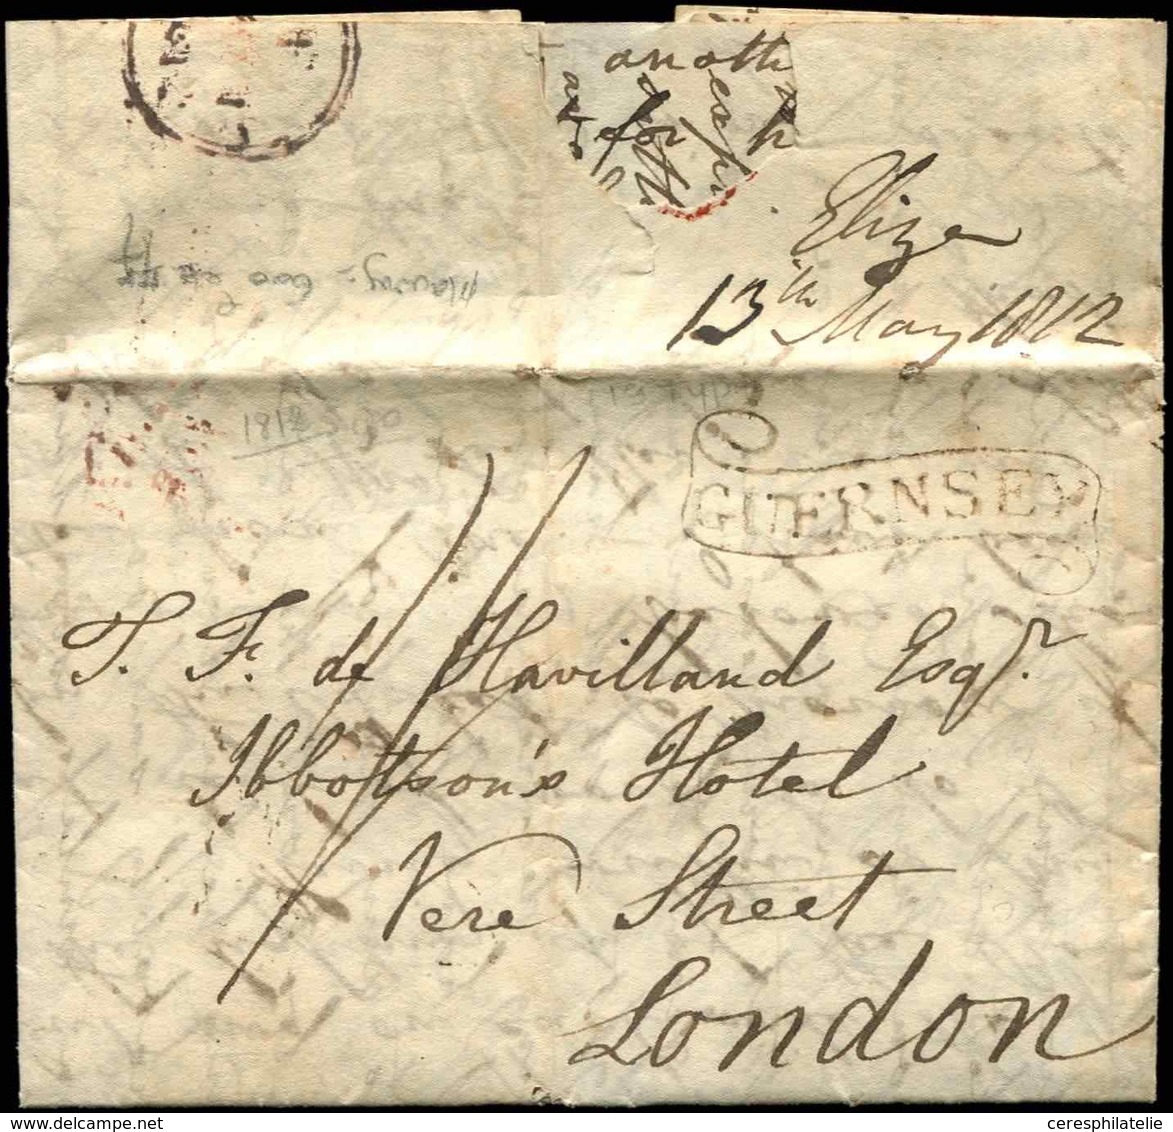 anoth
for
Eliza
13th May 1812
1812
GUERNSEY
T. F. de Havilland Esqr.
Ibbotson's Hotel
Vere Street
London
ceresphilatelie